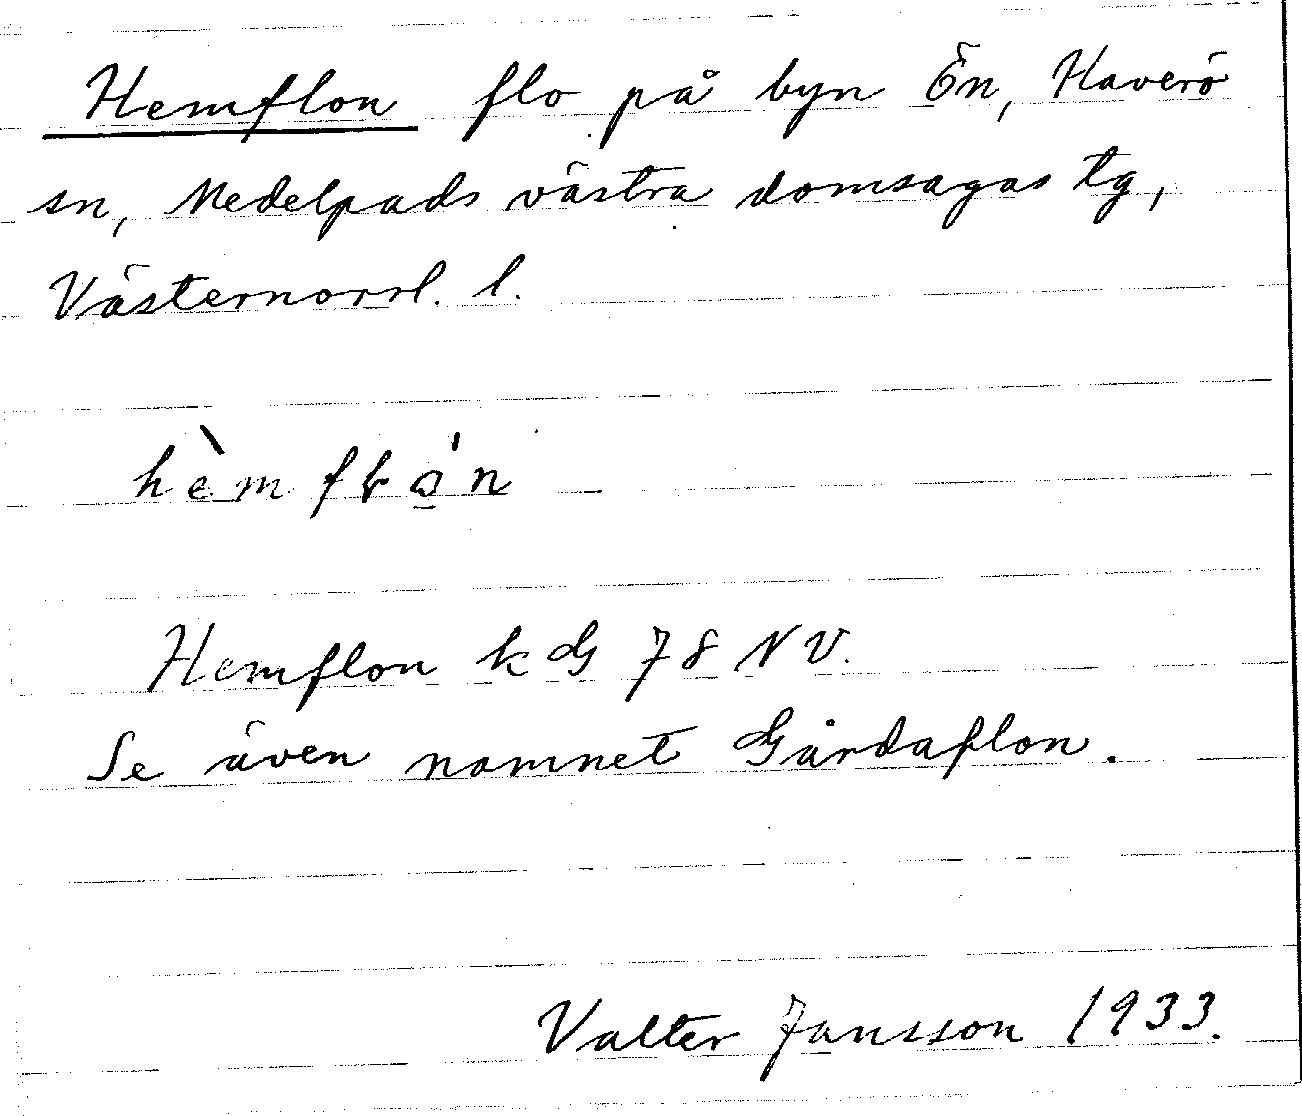 Hemflon flo på byn Ön, Haverö
sn, Medelpads västra domsagas tg,
Västernorrl. l.
hèmfɫǫ́n
Hemflon k G 78 NV.
Se även namnet Gårdaflon.
Valter Jansson 1933.